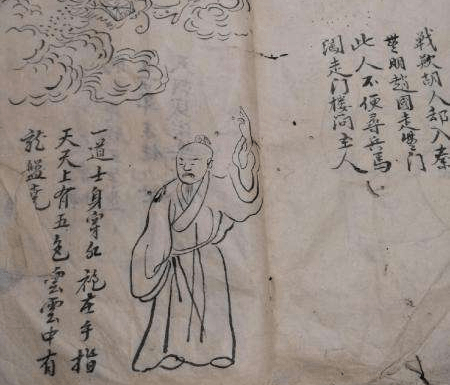 戰敗胡人却入秦
明趙國走门
此人不便尋兵馬
闯走门楼问主人
一道士身穿红袍左手指
天天上有五色雲雲中有
龍盤